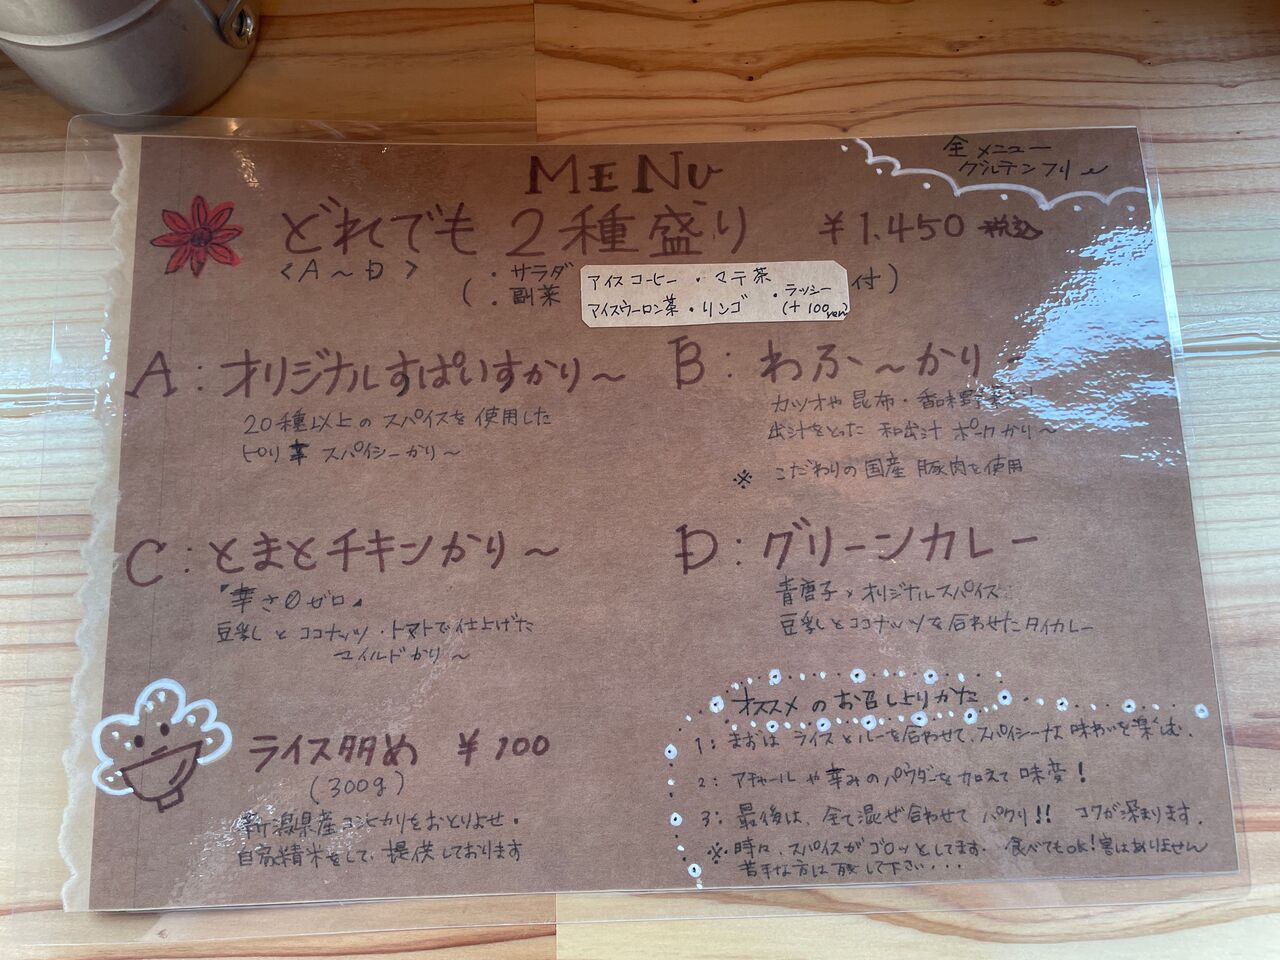 MENU
全メニュー
グルテンフリ〜
どれでも 2種盛り ¥1,450 税込
<A〜D>
(・サラダ
・副菜
アイスコーヒー ・マテ茶
アイスウーロン茶・リンゴ
・ラッシー
(+100yen)
付)
A:オリジナルすぱいすかり〜
20種以上の スパイスを使用した
ピリ辛 スパイシーかり〜
B:わふ〜かり
カツオや昆布・香味野菜
出汁をとった 和出汁 ポークかり〜
※ こだわりの国産 豚肉を使用
C:とまとチキンかり〜
『辛さ0ゼロ』
豆乳と ココナッツ・トマトで仕上げた
マイルドかり〜
D:グリーンカレー
青唐子×オリジナルスパイス
豆乳とココナッツを合わせたタイカレー
ライス多め ¥100
(300g)
新潟県産コシヒカリをおとりよせ・
自家精米をして、提供しております
オススメ の お召し上りかた
1:まずは ライスとルーを合わせて、スパイシーな味わいを楽しむ.
2:アチャールや辛みのパウダーを加えて味変!
3:最後は、全て混ぜ合わせて パクリ!! コクが深まります.
※ 時々、スパイスがゴロッとしてます. 食べてもOK!害はありません
苦手な方は 残して下さい...